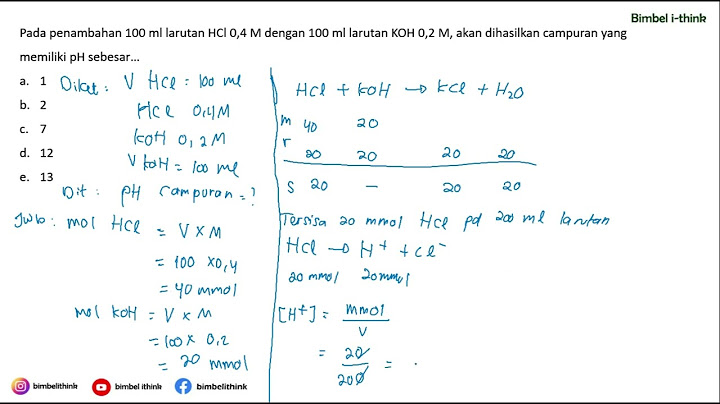 Bimbel i-think
Pada penambahan 100 ml larutan HCl 0,4 M dengan 100 ml larutan KOH 0,2 M, akan dihasilkan campuran yang
memiliki pH sebesar...
a. 1
b. 2
c. 7
d. 12
e. 13
Diket : V HCl = 100 ml
HCl 0,4 M
KOH 0,2 M
V KOH = 100 ml
Dit : pH Campuran = ?
Jwb : mol HCl = V x M
= 100 x 0,4
= 40 mmol
mol KOH = V x M
= 100 x 0,2
= 20 mmol
HCl + KOH → KCl + H₂O
m 40 20
r 20 20 20 20
s 20 - 20 20
Tersisa 20 mmol HCl pd 200 ml larutan
HCl → H⁺ + Cl⁻
20 mmol 20 mmol
[H⁺] = mmol
V
= 20
200 =
bimbelithink bimbel ithink bimbelithink